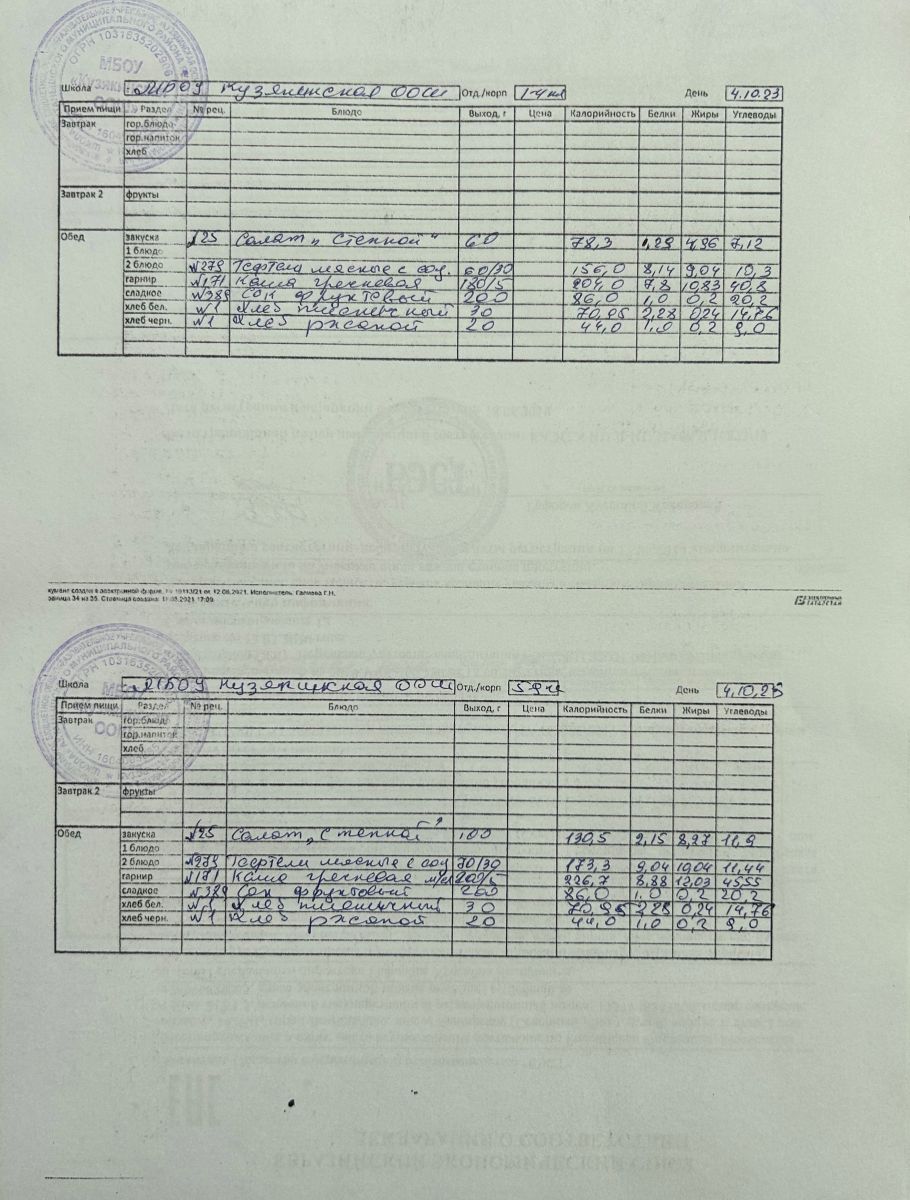 МБОУ
«Кузякинская
ООШ»
ОГРН 1031635202906
Школа МБОУ Кузякинская ООШ Отд./корп 1-4 кл День 4.10.23
Прием пищи Раздел № рец. Блюдо Выход, г Цена Калорийность Белки Жиры Углеводы
Завтрак гор.блюдо
гор.напиток
хлеб
Завтрак 2 фрукты
Обед закуска №25 Салат „Степной“ 60 78,3 1,29 4,96 7,12
1 блюдо
2 блюдо №279 Тефтели мясные с соу. 60/30 156,0 8,14 9,04 10,3
гарнир №171 Каша гречневая 180/5 204,0 7,8 10,83 40,8
сладкое №389 Сок фруктовый 200 86,0 1,0 0,2 20,2
хлеб бел. №1 Хлеб пшеничный 30 70,95 2,28 0,24 14,76
хлеб черн. №1 Хлеб ржаной 20 44,0 1,0 0,2 9,0
кумент создан в электронной форме. № 10113/21 от 12.08.2021. Исполнитель: Галиева Г.Н.
раница 34 из 35. Страница создана: 11.08.2021 17:09.
ЭЛЕКТРОННЫЙ
ТАТАРСТАН
Школа МБОУ Кузякинская ООШ Отд./корп 5-9 кл День 4.10.23
Прием пищи Раздел № рец. Блюдо Выход, г Цена Калорийность Белки Жиры Углеводы
Завтрак гор.блюдо
гор.напиток
хлеб
Завтрак 2 фрукты
Обед закуска №25 Салат „Степной“ 100 130,5 2,15 8,27 11,9
1 блюдо
2 блюдо №279 Тефтели мясные с соу 70/30 173,3 9,04 10,04 11,44
гарнир №171 Каша гречневая 200/5 226,7 8,88 12,03 45,55
сладкое №389 Сок фруктовый 200 86,0 1,0 0,2 20,2
хлеб бел. №1 Хлеб пшеничный 30 70,95 2,28 0,24 14,76
хлеб черн. №1 Хлеб ржаной 20 44,0 1,0 0,2 9,0